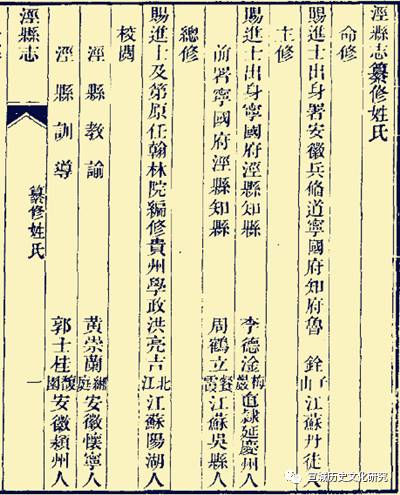 涇縣志纂修姓氏
命修
賜進士出身署安徽兵俻道寧國府知府魯 銓 子山 江蘇丹徒人
主修
賜進士出身寧國府涇縣知縣 李德淦 梅巖 直隸延慶州人
前署寧國府涇縣知縣 周鶴立 餐霞 江蘇吳縣人
總修
賜進士及第原任翰林院編修貴州學政洪亮吉 北江 江蘇陽湖人
校閱
涇縣教諭 黃崇蘭 庭 安徽懷寧人
涇縣訓導 郭士桂 馥園 安徽潁州人
涇縣志 纂修姓氏 一
宣城历史文化研究